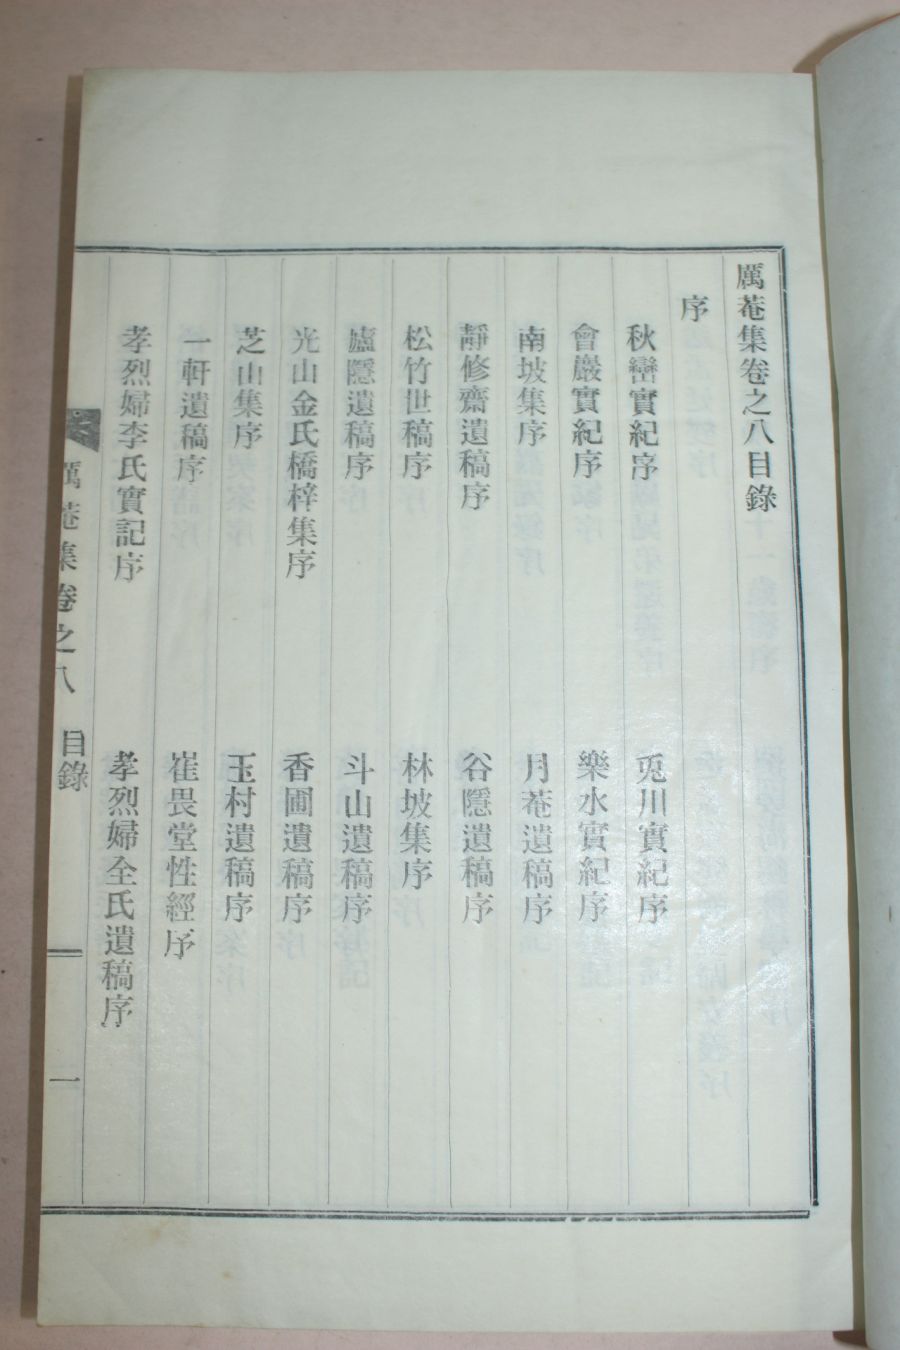 厲菴集卷之八目錄
序
秋巒實紀序 兎川實紀序
會巖實紀序 樂水實紀序
南坡集序 月菴遺稿序
靜修齋遺稿序 谷隱遺稿序
松竹世稿序 林坡集序
廬隱遺稿序 斗山遺稿序
光山金氏橋梓集序 香圃遺稿序
芝山集序 玉村遺稿序
一軒遺稿序 崔畏堂性經序
孝烈婦李氏實記序 孝烈婦全氏遺稿序
厲菴集卷之八 目錄 一